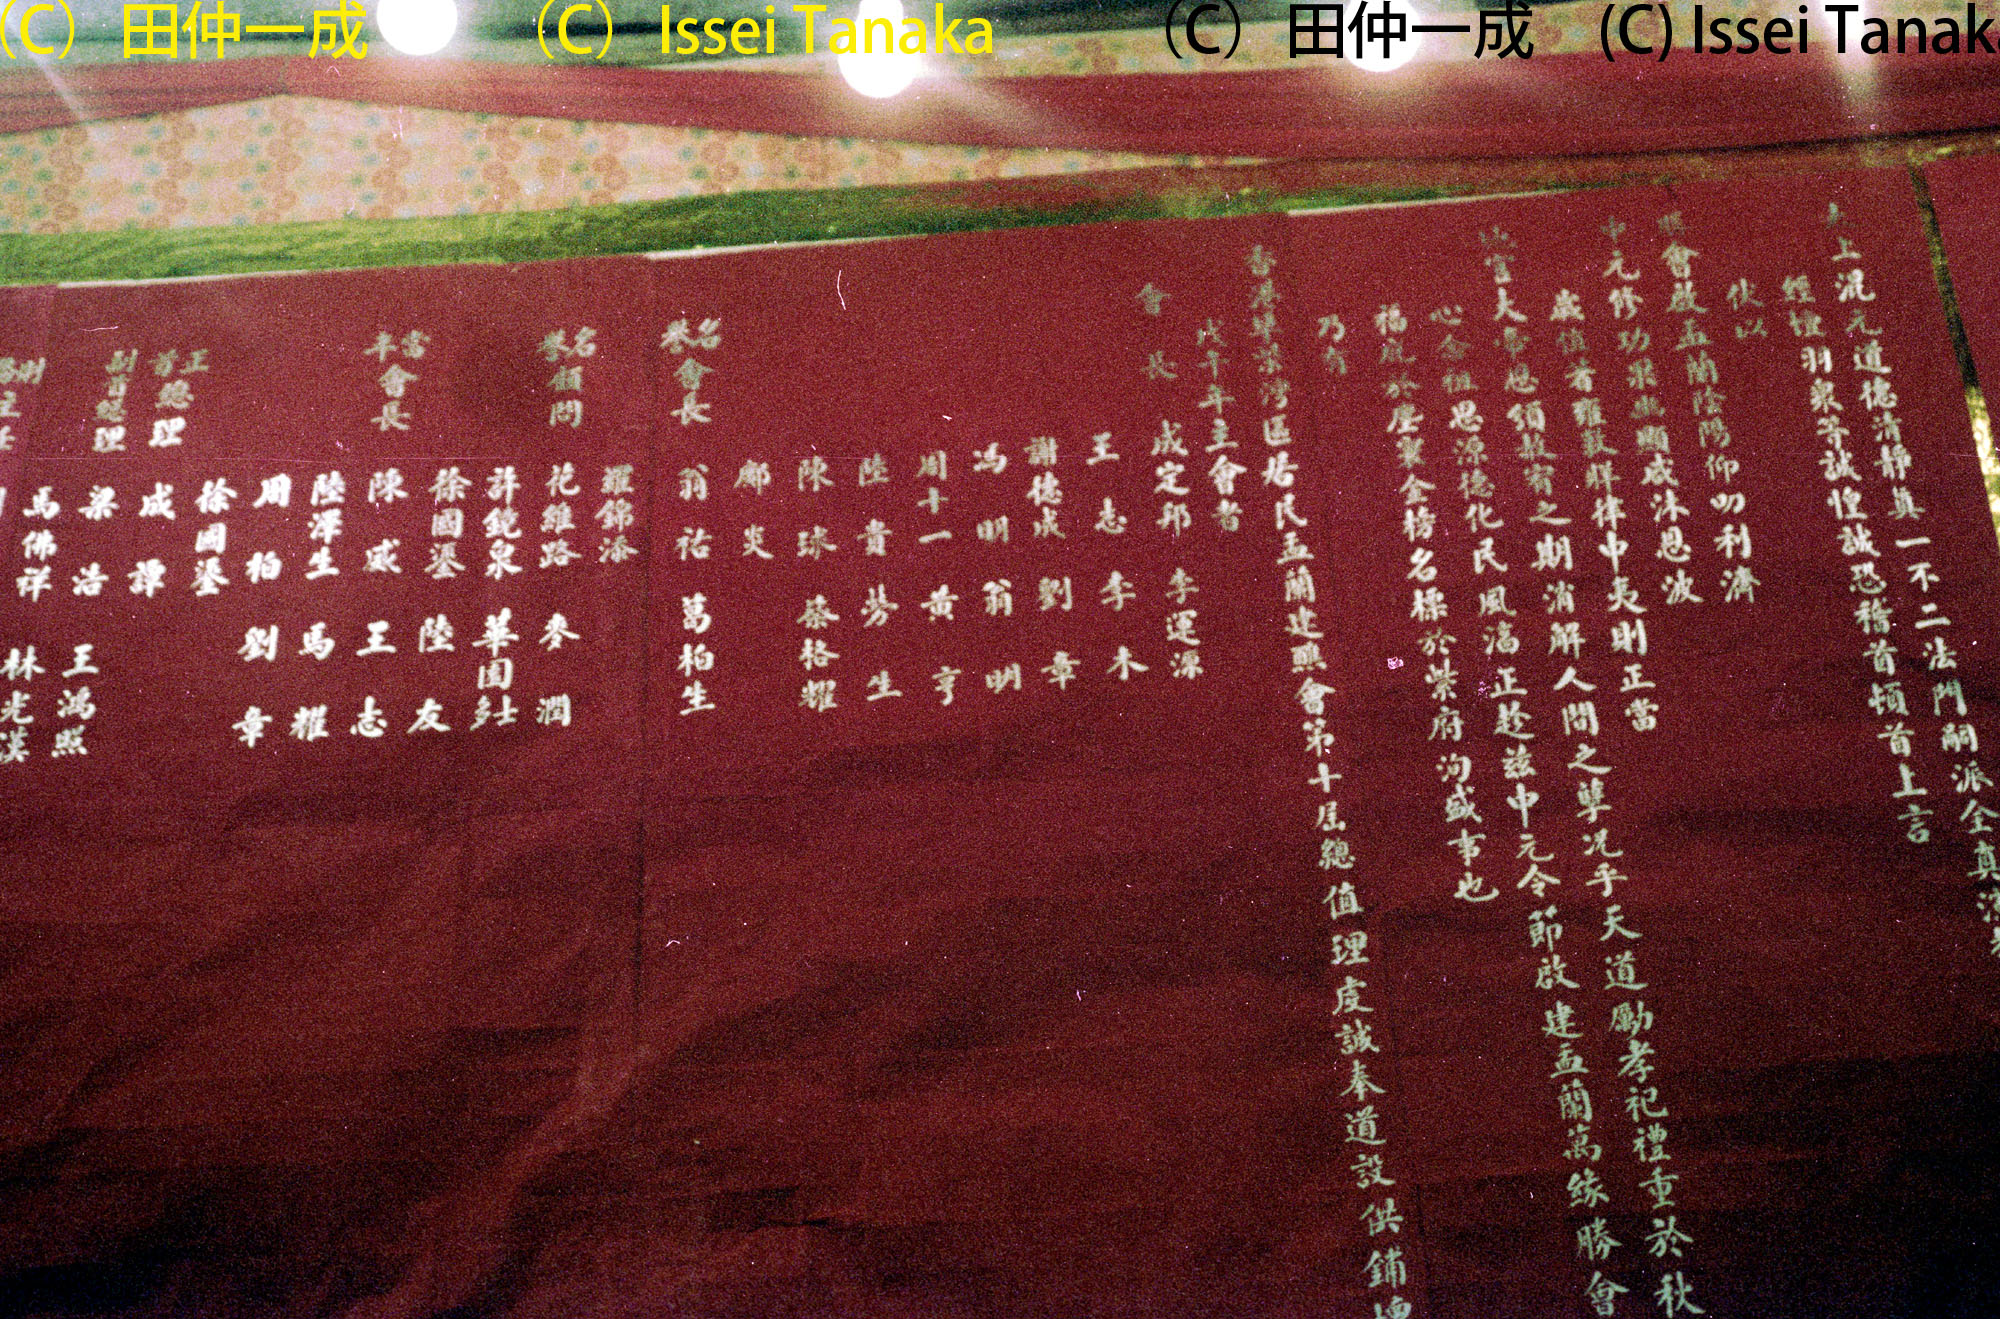 (C) 田仲一成 (C) Issei Tanaka (C) 田仲一成 (C) Issei Tanaka
上混元道德清靜真一不二法門嗣派全真
經壇羽衆等誠惶誠恐稽首頓首上言
伏以
會啟盂蘭陰陽仰叨利濟
元修功果幽顯咸沐恩波
歲值首雖蕤律中夷則正當
官大帝恩頒赦宥之期消解人間之孽况乎天道勵孝祀禮重於秋
心念祖思源德化民風濇正趁茲中元令節啟建盂蘭萬緣勝會
福於壇裏金榜名標於紫府洵盛事也
乃有
香港荃灣區居民盂蘭建醮會第十屆總值理虔誠奉道設供鋪壇
戊午年主會者
會長 成定邦 李運源
王志 李木
謝德成 劉章
馮明 翁明
周十一 黃亨
陸貴 勞生
陳球 蔡格耀
鄺炎
名譽會長 翁祐 葛柏生
羅錦添
名譽顧問 花維路 麥潤
許鏡泉 華園多士
徐國鎏 陸友
當年會長 陳威 王志
陸澤生 馬耀
周柏 劉章
徐國鎏
正首總理 成譚
副首總理 梁浩 王鴻照
馬佛祥 林光漢